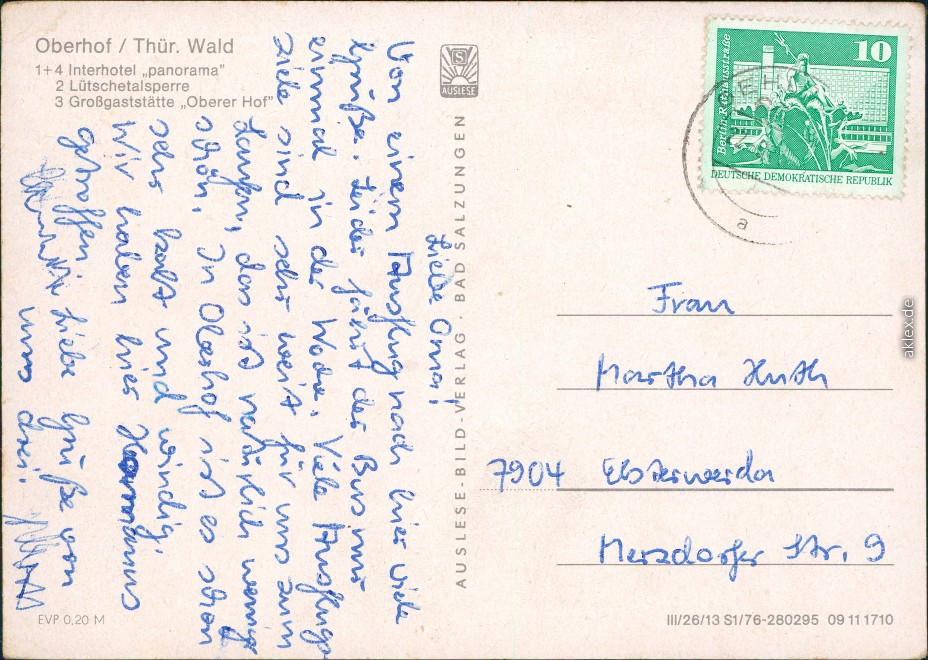 Oberhof / Thür. Wald
1+4 Interhotel „panorama"
2 Lütschetalsperre
3 Großgaststätte „Oberer Hof"
Liebe Oma!
Von einem Ausflug nach hier viele
Grüße. Leider fährt der Bus nur
einmal in der Woche. Viele Ausflugs-
ziele sind sehr weit für uns zum
Laufen, das ist natürlich weniger
schön. In Oberhof ist es schon
sehr kalt und windig.
Wir haben hier
getroffen. Liebe Grüße von
uns drei.
AUSLESE
AUSLESE-BILD-VERLAG · BAD SALZUNGEN
Berlin-Rathausstraße
10
DEUTSCHE DEMOKRATISCHE REPUBLIK
a
Frau
Martha Huth
7904 Elsterwerda
Merzdorfer Str. 9
EVP 0,20 M
III/26/13 S1/76-280295 09 11 1710
aklex.de